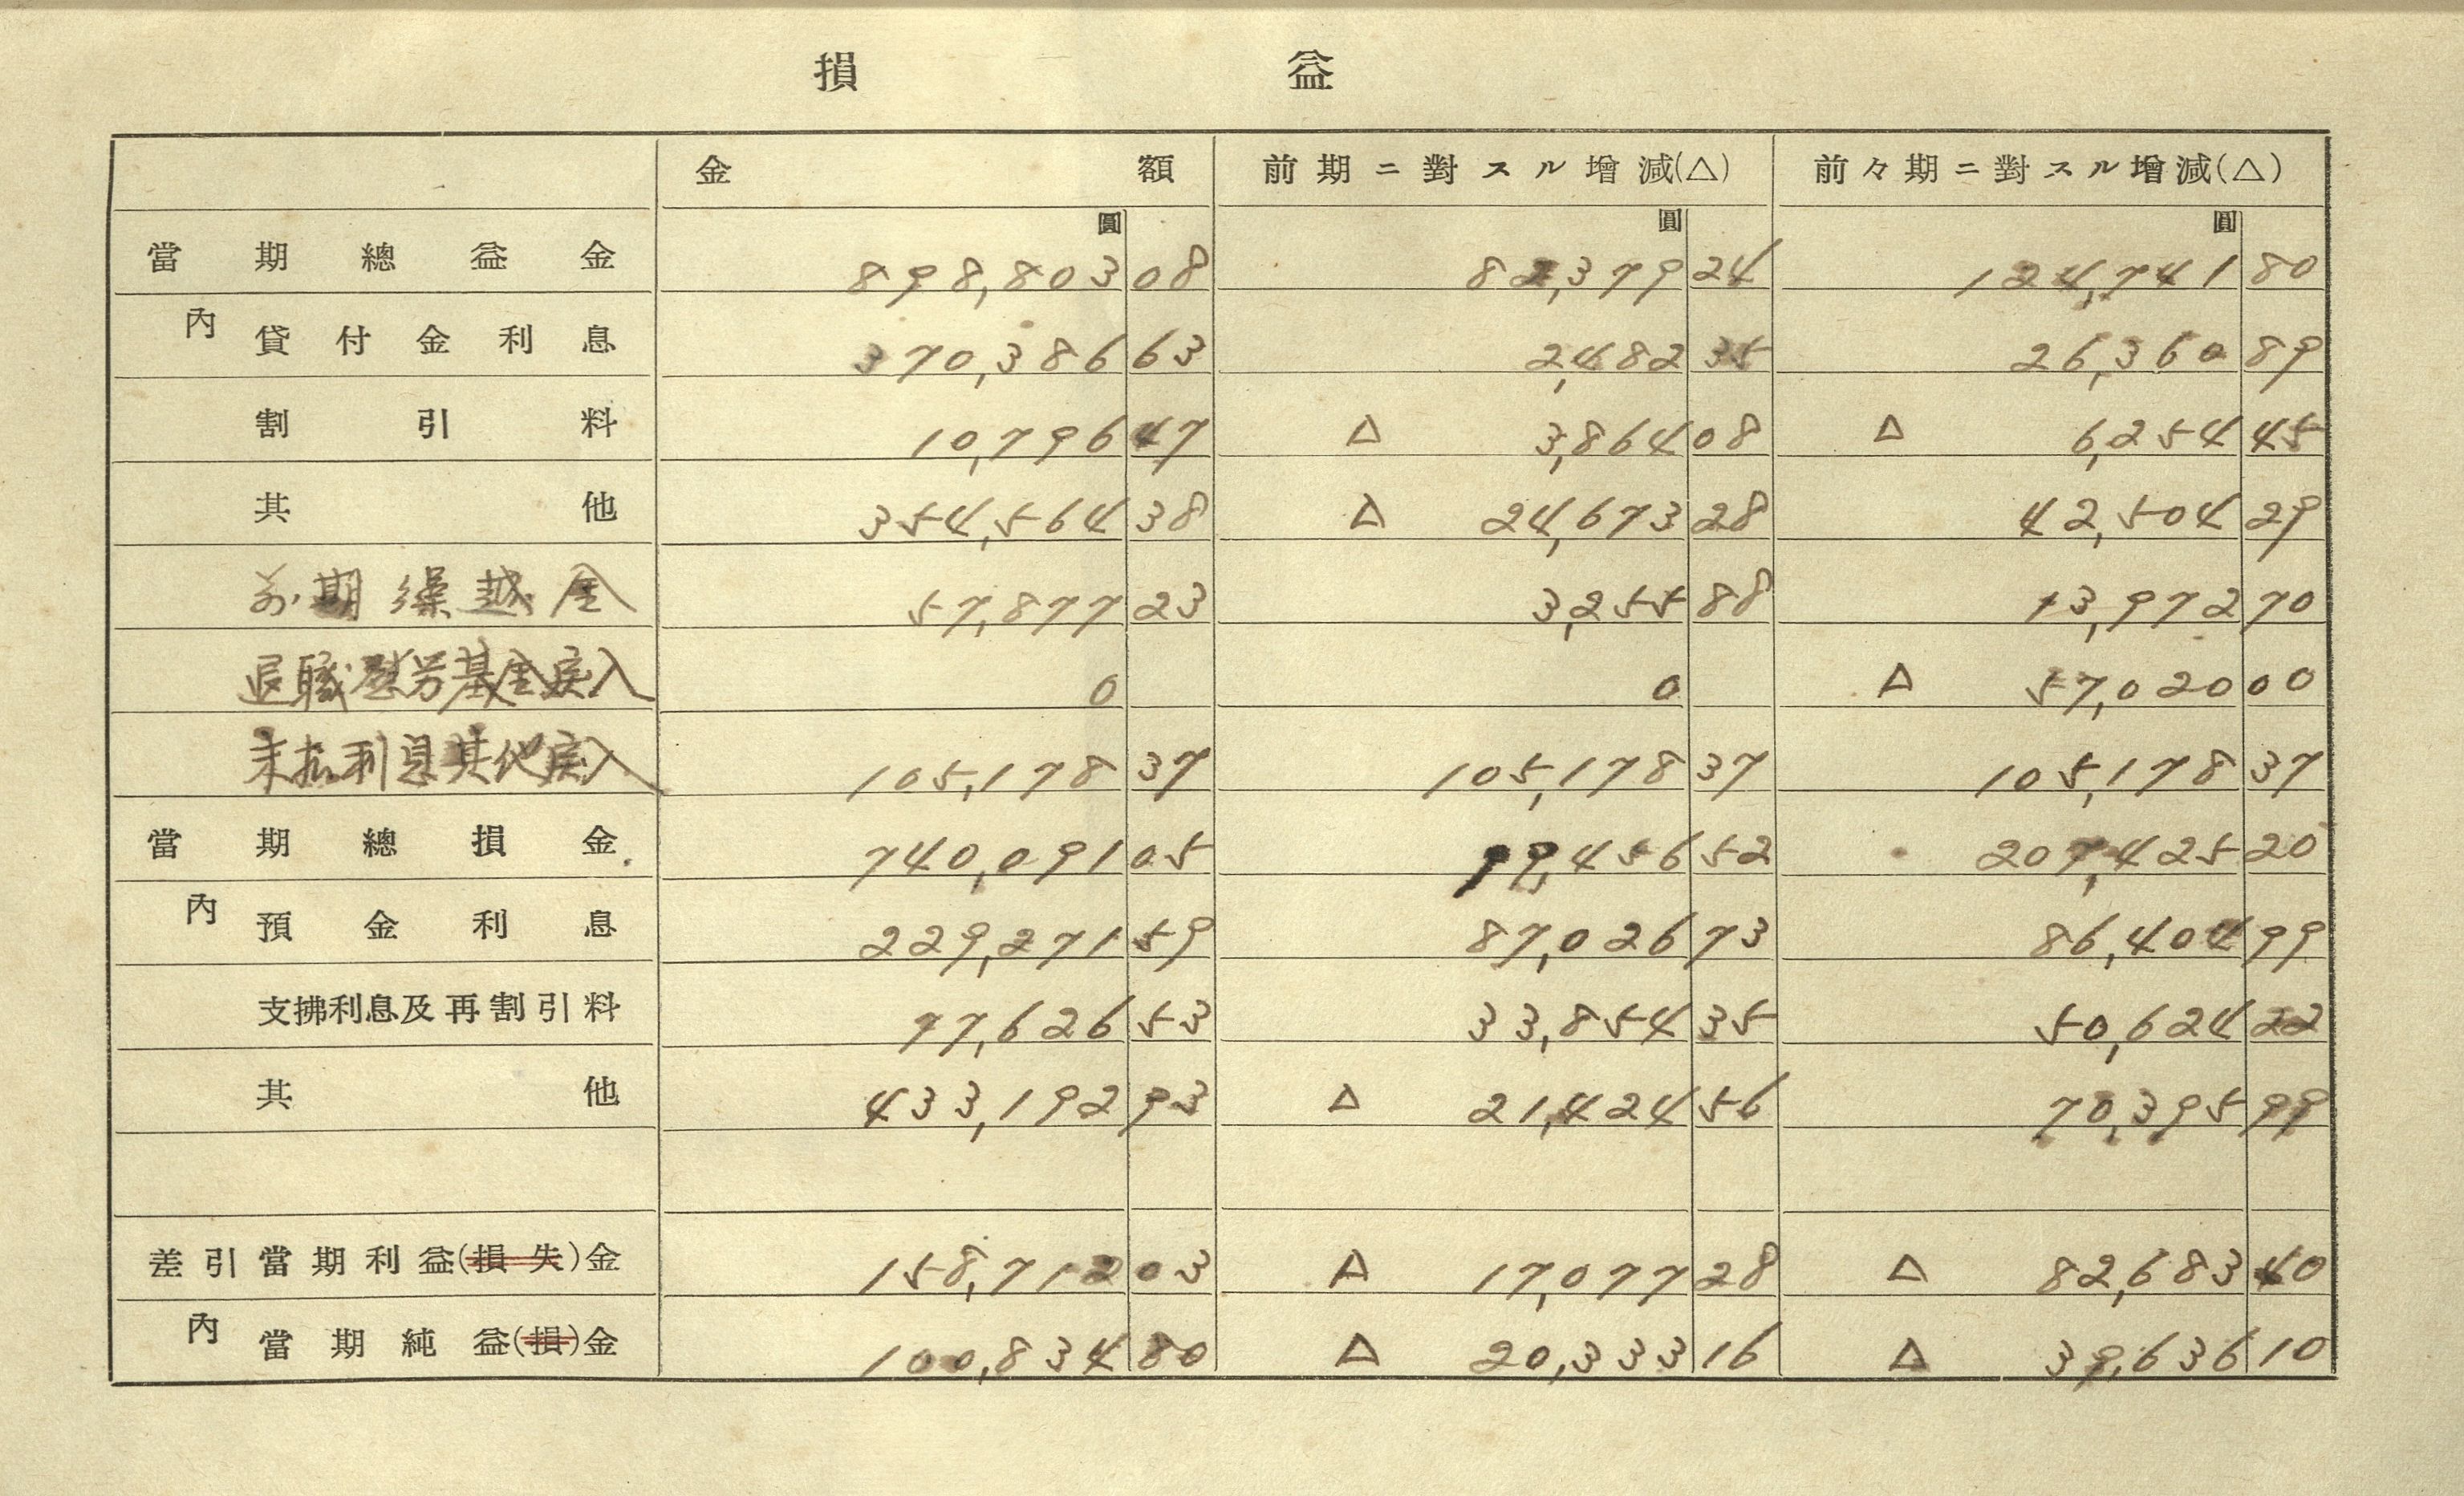 損益
金額 前期ニ對スル增減(△) 前々期ニ對スル增減(△)
圓 圓 圓
當期總益金 898,803 08 82,379 24 124,741 80
內 貸付金利息 370,386 63 2,482 35 26,360 89
割引料 10,796 47 △ 3,864 08 △ 6,254 45
其他 354,564 38 △ 24,673 28 42,504 29
前期繰越金 57,877 23 3,255 88 13,972 70
退職慰労基金戻入 0 0 △ 57,020 00
未払利息其他戻入 105,178 37 105,178 37 105,178 37
當期總損金 740,091 05 99,456 52 207,425 20
內 預金利息 229,271 59 87,026 73 86,404 99
支拂利息及再割引料 77,626 53 33,854 35 50,624 22
其他 433,192 93 △ 21,424 56 70,395 99
差引當期利益(損失)金 158,712 03 △ 17,077 28 △ 82,683 40
內 當期純益(損)金 100,834 80 △ 20,333 16 △ 39,636 10